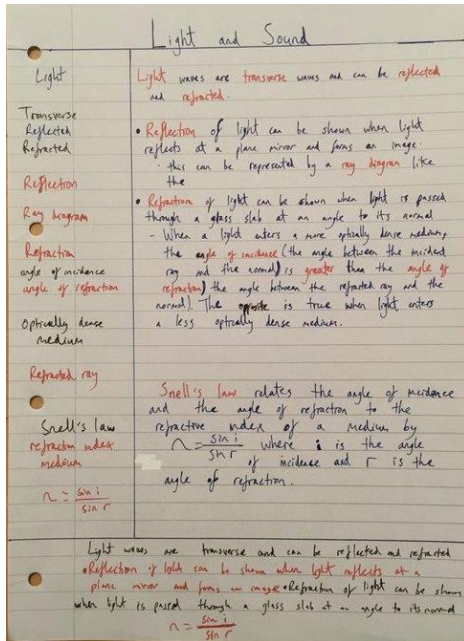 Light and Sound
Light
Transverse
Reflected
Refracted
Reflection
Ray diagram
Refraction
angle of incidence
angle of refraction
Optically dense
medium
Refracted ray
Snell's law
refraction index
medium
n = sin i / sin r
Light waves are transverse waves and can be reflected
and refracted.
• Reflection of light can be shown when light
reflects at a plane mirror and forms an image.
- this can be represented by a ray diagram like
the
• Refraction of light can be shown when light is passed
through a glass slab at an angle to its normal
- When a light enters a more optically dense medium,
the angle of incidence (the angle between the incident
ray and the normal) is greater than the angle of
refraction) the angle between the refracted ray and the
normal). The opposite is true when light enters
a less optically dense medium.
Snell's law relates the angle of incidence
and the angle of refraction to the
refractive index of a medium by
n = sin i / sin r where i is the angle
of incidence and r is the
angle of refraction.
Light waves are transverse and can be reflected and refracted
• Reflection of light can be shown when light reflects at a
plane mirror and forms an image • Refraction of light can be shown
when light is passed through a glass slab at an angle to its normal
n = sin i / sin r